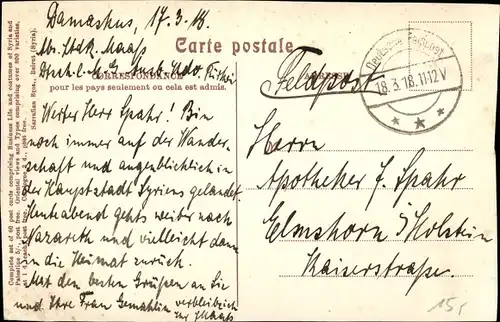 Damaskus, 17.3.18.
Carte postale
CORRESPONDANCE
pour les pays seulement ou cela est admis.
ADRESSE
Feldpost
Deutsche Feldpost
18.3.18.11-12V
Werter Herr Spahr! Bin
noch immer auf der Wander-
schaft und augenblicklich in
der Hauptstadt Syriens gelandet.
Heute abend gehts weiter nach
Nazareth und vielleicht dann
in die Heimat zurück.
Mit den besten Grüßen an Sie
und Ihre Frau Gemahlin verbleibe ich
Ihr Maaß
Herrn
Apotheker J. Spahr
Elmshorn i/Holstein
Kaiserstraße.
15,
Complete set of 60 post cards comprising Business Life and costumes of Syria and
Palestine 5/, post free. Oriental views and Types comprising over 800 varieties,
Sarrafian Bros., Beirut (Syria).